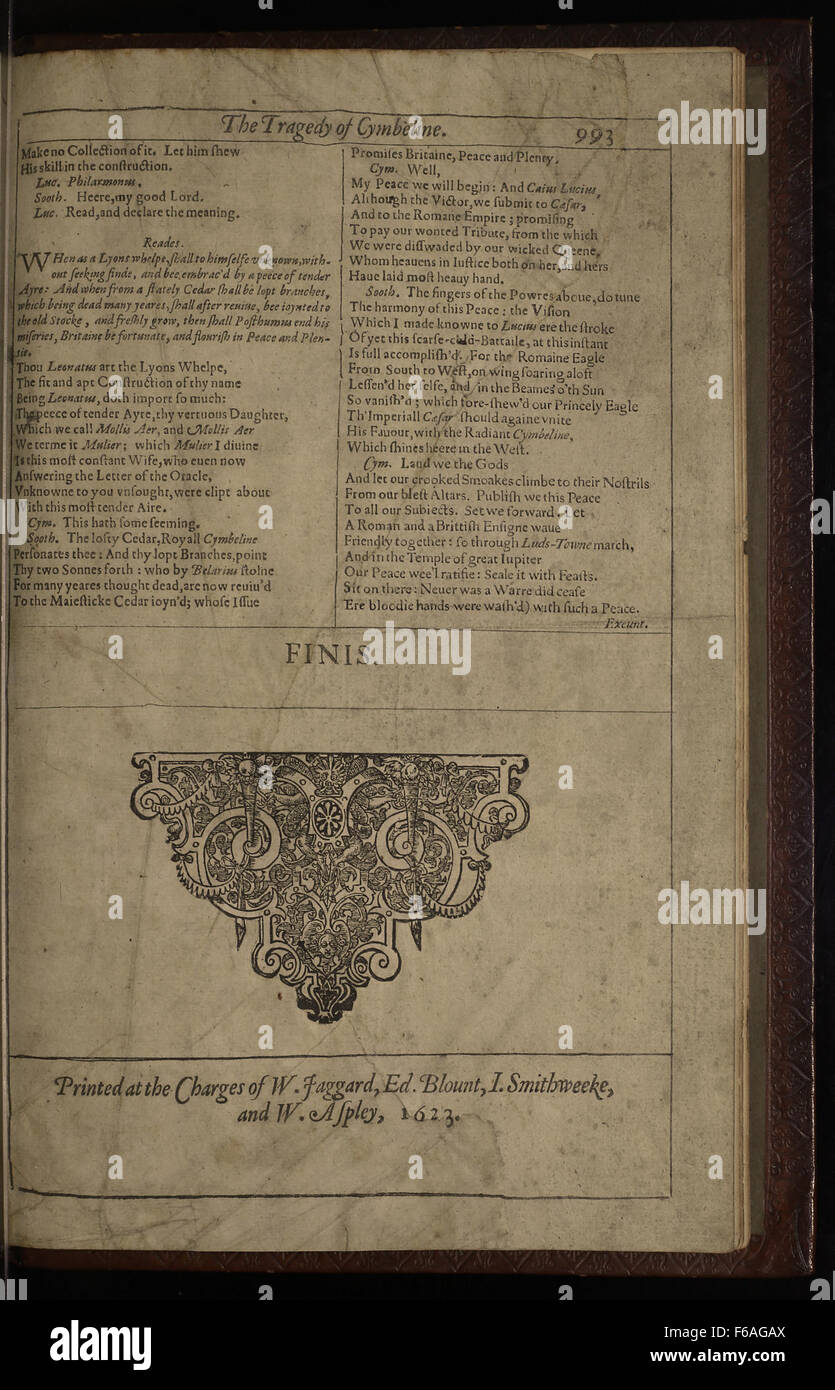 The Tragedy of Cymbeline.
993
Make no Collection of it. Let him ſhew
His skill in the conſtruction.
Luc. Philarmonus.
Sooth. Heere, my good Lord.
Luc. Read, and declare the meaning.
Reades.
WHen as a Lyons whelpe, ſhall to himſelfe vnknown, with-
out ſeeking finde, and bee embrac'd by a peece of tender
Ayre: And when from a ſtately Cedar ſhall be lopt branches,
which being dead many yeares, ſhall after reuiue, bee ioynted to
the old Stocke, and freſhly grow, then ſhall Poſthumus end his
miſeries, Britaine be fortunate, and flouriſh in Peace and Plen-
tie.
Thou Leonatus art the Lyons Whelpe,
The fit and apt Conſtruction of thy name
Being Leonatus, doth import ſo much:
The peece of tender Ayre, thy vertuous Daughter,
Which we call Mollis Aer, and Mollis Aer
We terme it Mulier; which Mulier I diuine
Is this moſt conſtant Wife, who euen now
Anſwering the Letter of the Oracle,
Vnknowne to you vnſought, were clipt about
With this moſt tender Aire.
Cym. This hath ſome ſeeming.
Sooth. The lofty Cedar, Royall Cymbeline
Perſonates thee: And thy lopt Branches, point
Thy two Sonnes forth: who by Belarius ſtolne
For many yeares thought dead, are now reuiu'd
To the Maieſticke Cedar ioyn'd; whoſe Iſſue
Promiſes Britaine, Peace and Plenty.
Cym. Well,
My Peace we will begin: And Caius Lucius,
Although the Victor, we ſubmit to Cæſar,
And to the Romane Empire; promiſing
To pay our wonted Tribute, from the which
We were diſſwaded by our wicked Queene,
Whom heauens in Iuſtice both on her, and hers
Haue laid moſt heauy hand.
Sooth. The fingers of the Powres aboue, do tune
The harmony of this Peace: the Viſion
Which I made knowne to Lucius ere the ſtroke
Of yet this ſcarſe-cold-Battaile, at this inſtant
Is full accompliſh'd. For the Romaine Eagle
From South to Weſt, on wing ſoaring aloft
Leſſen'd her ſelfe, and in the Beames o'th Sun
So vaniſh'd; which fore-ſhew'd our Princely Eagle
Th'Imperiall Cæſar ſhould againe vnite
His Fauour, with the Radiant Cymbeline,
Which ſhines heere in the Weſt.
Cym. Laud we the Gods
And let our crooked Smoakes climbe to their Noſtrils
From our bleſt Altars. Publiſh we this Peace
To all our Subiects. Set we forward: Let
A Roman and a Brittiſh Enſigne waue
Friendly together: ſo through Luds-Towne march,
And in the Temple of great Iupiter
Our Peace wee'l ratifie: Seale it with Feaſts.
Set on there: Neuer was a Warre did ceaſe
(Ere bloodie hands were waſh'd) with ſuch a Peace.
Exeunt.
FINIS.
Printed at the Charges of W. Jaggard, Ed. Blount, I. Smithweeke,
and W. Aſpley, 1623.
alamy
alamy
alamy
alamy
alamy stock photo
F6AGAX
www.alamy.com